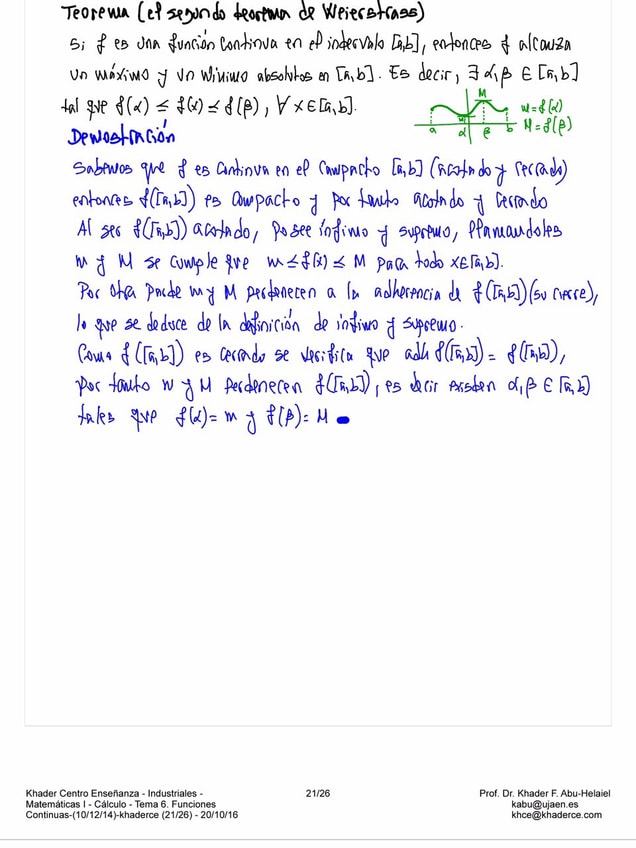 Teorema (el segundo teorema de Weierstrass)
Si f es una función continua en el intervalo [a,b], entonces f alcanza
un máximo y un mínimo absolutos en [a,b]. Es decir, ∃ α,β ∈ [a,b]
tal que f(α) ≤ f(x) ≤ f(β), ∀ x ∈ [a,b].
M
m
a α β b
m=f(α)
M=f(β)
Demostración
Sabemos que f es continua en el compacto [a,b] (acotado y cerrado)
entonces f([a,b]) es compacto y por tanto acotado y cerrado
Al ser f([a,b]) acotado, posee ínfimo y supremo, llamándoles
m y M se cumple que m ≤ f(x) ≤ M para todo x∈[a,b].
Por otra parte m y M pertenecen a la adherencia de f([a,b]) (su cierre),
lo que se deduce de la definición de ínfimo y supremo.
Como f([a,b]) es cerrado se verifica que adh f([a,b]) = f([a,b]),
por tanto m y M pertenecen f([a,b]), es decir existen α,β ∈ [a,b]
tales que f(α)= m y f(β)= M
Khader Centro Enseñanza - Industriales -
Matemáticas I - Cálculo - Tema 6. Funciones
Continuas-(10/12/14)-khaderce (21/26) - 20/10/16
21/26
Prof. Dr. Khader F. Abu-Helaiel
kabu@ujaen.es
khce@khaderce.com